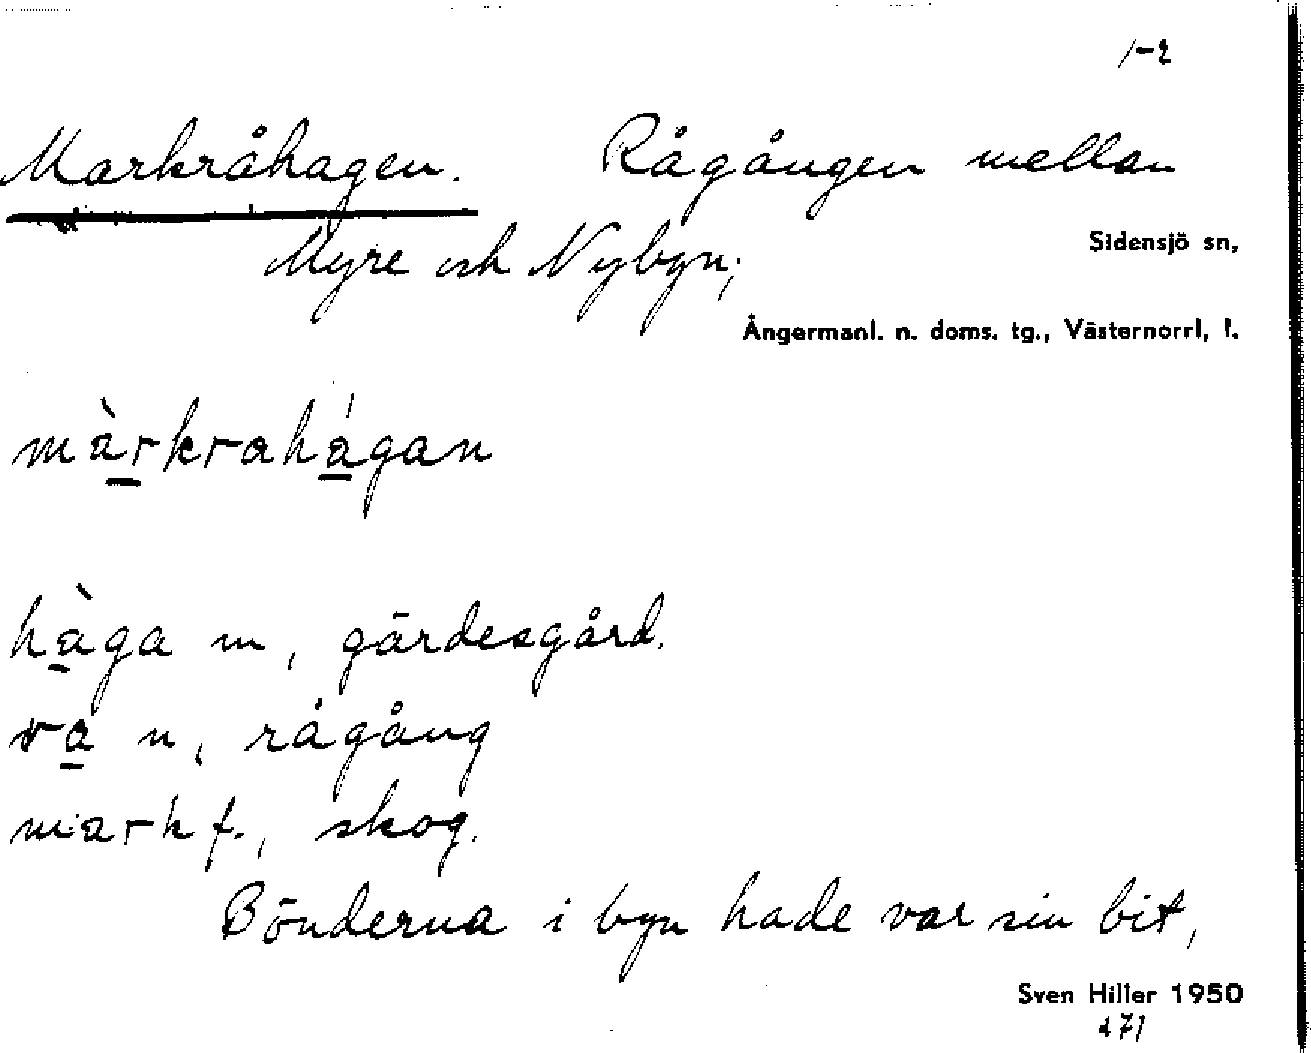 1-2
Markråhagen. Rågången mellan
Sidensjö sn,
Myre och Nybyn;
Ångermanl. n. doms. tg., Västernorrl, l.
màrkrahágan
hàga m, gärdesgård.
ra n, rågång
mark f., skog.
Bönderna i byn hade var sin bit,
Sven Hiller 1950
171